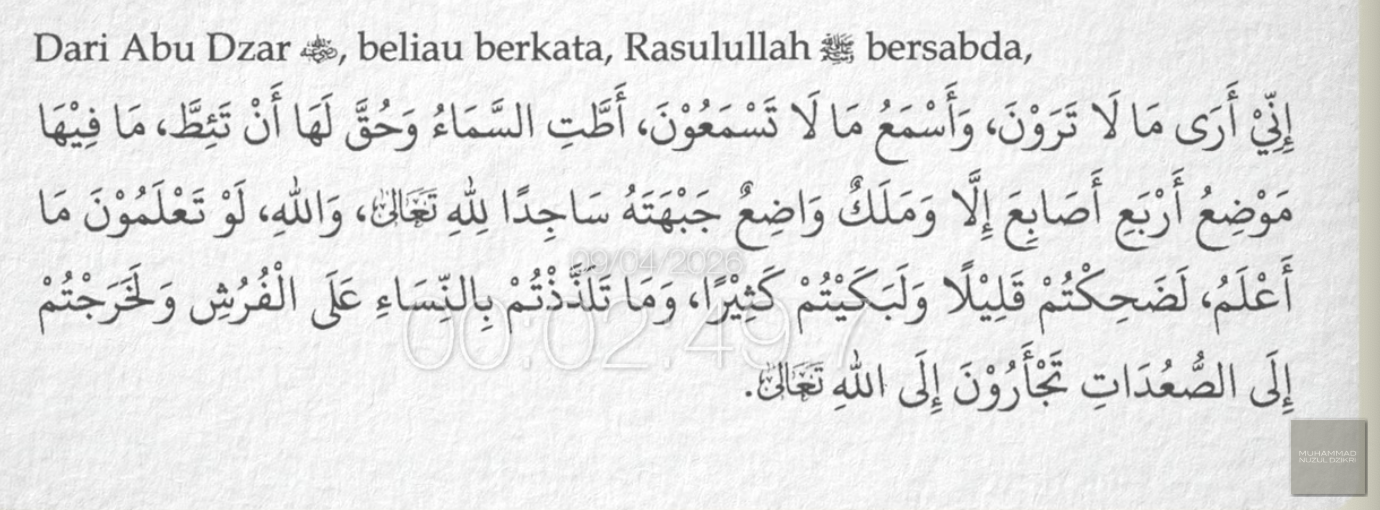 Dari Abu Dzar ؓ, beliau berkata, Rasulullah ﷺ bersabda,
إِنِّيْ أَرَى مَا لَا تَرَوْنَ، وَأَسْمَعُ مَا لَا تَسْمَعُوْنَ، أَطَّتِ السَّمَاءُ وَحُقَّ لَهَا أَنْ تَئِطَّ، مَا فِيْهَا
مَوْضِعُ أَرْبَعِ أَصَابِعَ إِلَّا وَمَلَكٌ وَاضِعٌ جَبْهَتَهُ سَاجِدًا لِلّٰهِ تَعَالَىٰ، وَاللّٰهِ، لَوْ تَعْلَمُوْنَ مَا
09/04/2026
أَعْلَمُ، لَضَحِكْتُمْ قَلِيْلًا وَلَبَكَيْتُمْ كَثِيْرًا، وَمَا تَلَذَّذْتُمْ بِالنِّسَاءِ عَلَى الْفُرُشِ وَلَخَرَجْتُمْ
00:02:49.7
إِلَى الصُّعُدَاتِ تَجْأَرُوْنَ إِلَى اللّٰهِ تَعَالَىٰ.
MUHAMMAD
NUZUL DZIKRI